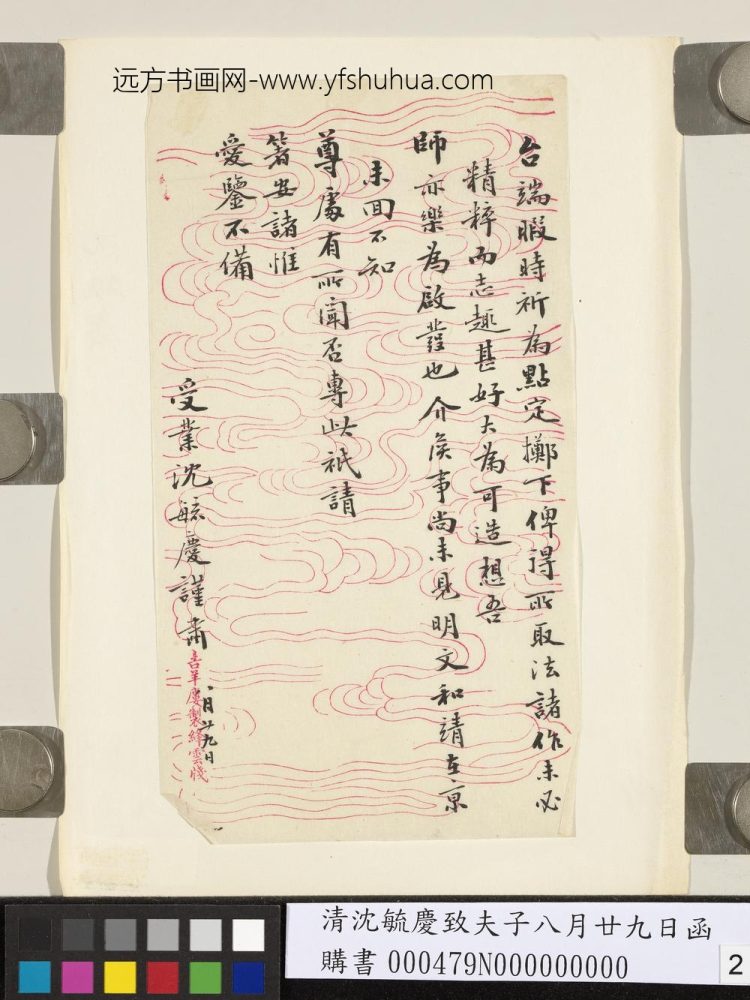 远方书画网-www.yfshuhua.com
台端暇時祈為點定擲下俾得所取法諸作未必
精粹而志趣甚好大為可造想吾
師亦樂為啟發也介侯事尚未見明文和靖在京
未回不知
尊處有所聞否專此祇請
箸安諸惟
愛鑒不備
受業沈毓慶謹肅
八月廿九日
吉羊慶製絳雲牋
清沈毓慶致夫子八月廿九日函
購書 000479N000000000
2